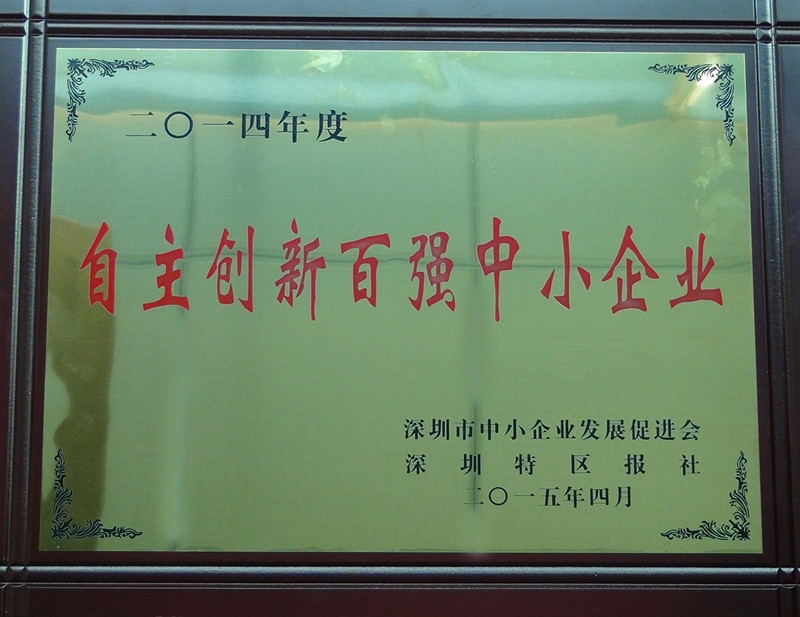 二〇一四年度
自主创新百强中小企业
深圳市中小企业发展促进会
深圳特区报社
二〇一五年四月